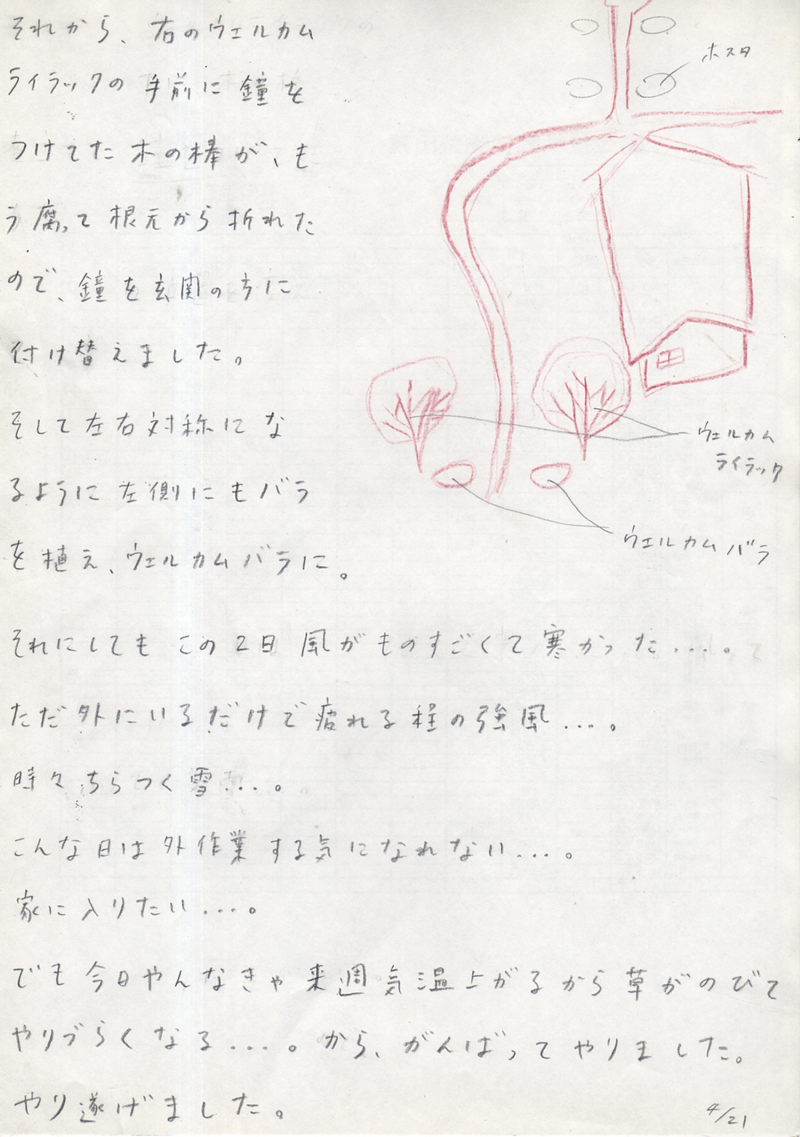 それから、右のウェルカム
ライラックの手前に鐘を
つけてた木の棒が、も
う腐って根元から折れた
ので、鐘を玄関の方に
付け替えました。
そして左右対称にな
るように左側にもバラ
を植え、ウェルカムバラに。
ホスタ
ウェルカム
ライラック
ウェルカムバラ
それにしてもこの2日風がものすごくて寒かった....。
ただ外にいるだけで疲れる程の強風....。
時々ちらつく雪....。
こんな日は外作業する気になれない....。
家に入りたい....。
でも今日やんなきゃ来週気温上がるから草がのびて
やりづらくなる....。から、がんばってやりました。
やり遂げました。
4/21